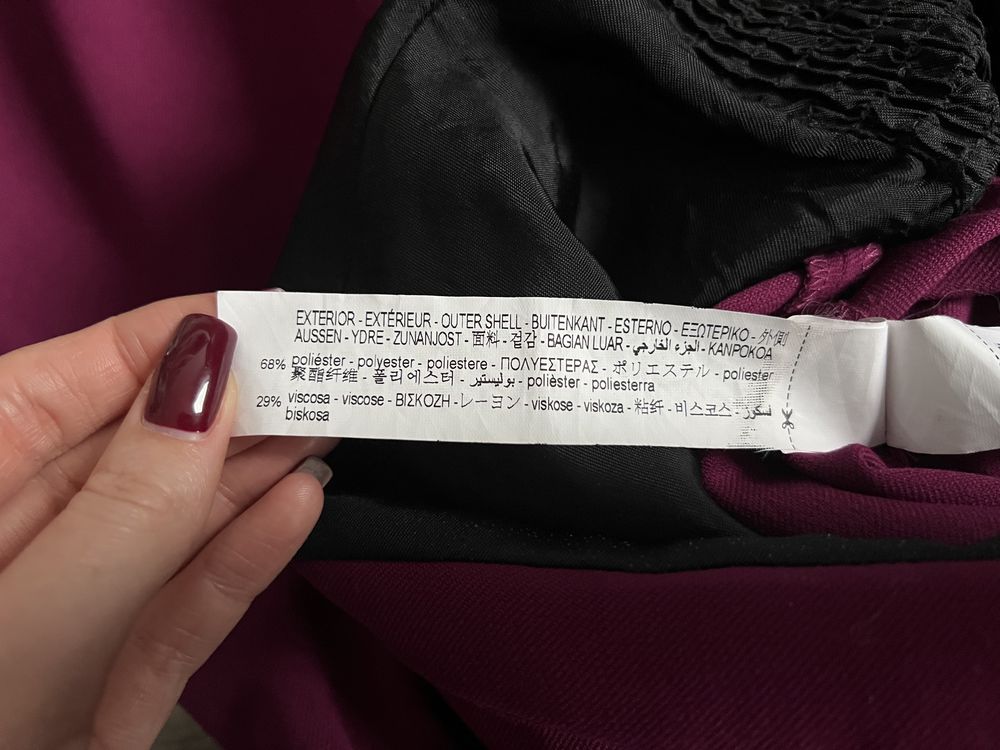 EXTERIOR - EXTÉRIEUR - OUTER SHELL - BUITENKANT - ESTERNO - ΕΞΩΤΕΡΙΚΟ - 外側
AUSSEN - YDRE - ZUNANJOST - 面料 - 겉감 - BAGIAN LUAR - الجزء الخارجي - KANPOKOA
68% poliéster - polyester - poliestere - ΠΟΛΥΕΣΤΕΡΑΣ - ポリエステル - poliester
聚酯纤维 - 폴리에스터 - بوليستير - polièster - poliesterra
29% viscosa - viscose - ΒΙΣΚΟΖΗ - レーヨン - viskose - viskoza - 粘纤 - 비스코스 - فسكوز
biskosa